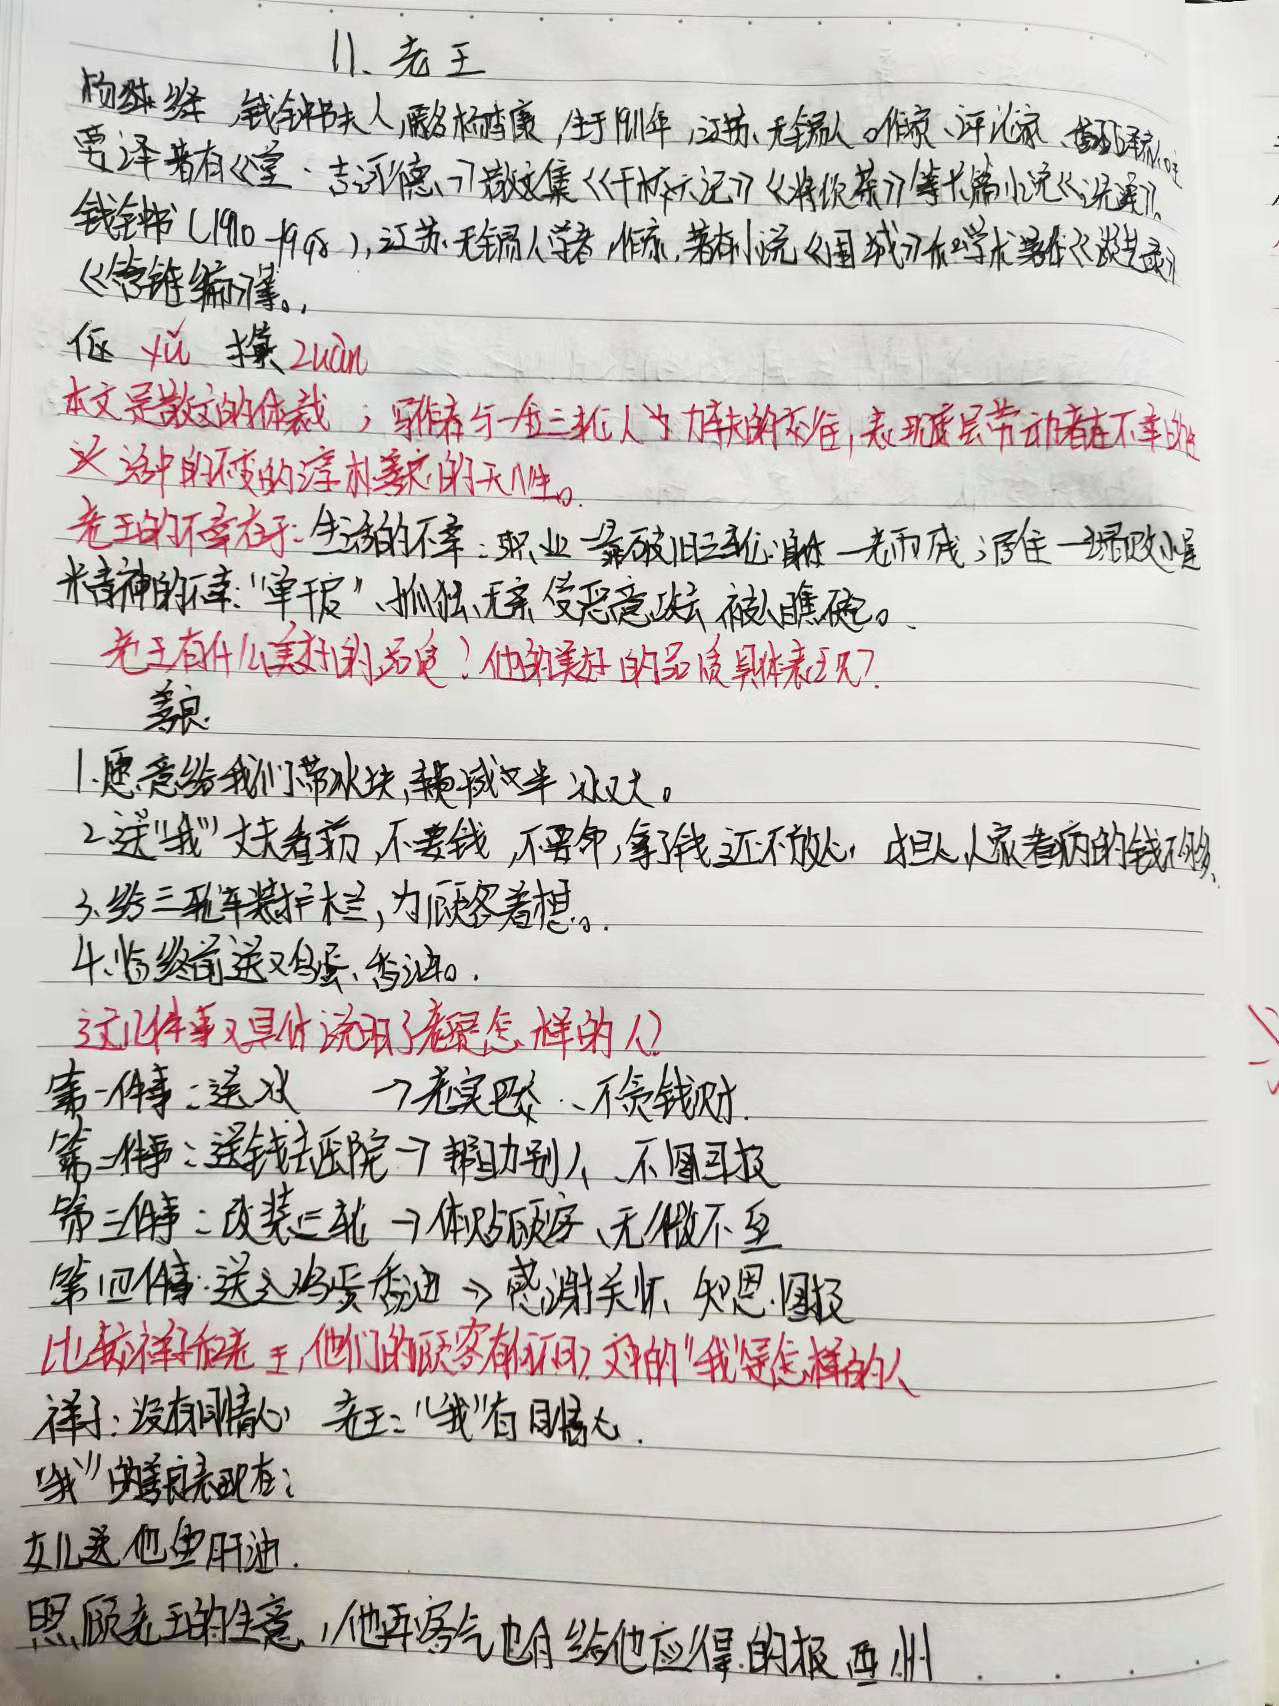 11、老王
杨绛 钱钟书夫人,原名杨季康,生于1911年,江苏无锡人。作家、评论家、翻译家。主
要译著有《堂·吉诃德》散文集《干校六记》《将饮茶》等长篇小说《洗澡》。
钱钟书(1910-1998),江苏无锡人学者 作家,著有小说《围城》和学术著作《谈艺录》
《管锥编》等。
伛 yǔ 攥 zuàn
本文是散文的体裁,写作者与一位三轮人力车夫的交往,表现底层劳动者在不幸的生
活中的不变的淳朴善良的天性。
老王的不幸在于:生活的不幸:职业—靠破旧三轮 身体—老而残;居住—塌败小屋
精神的不幸:“单干户”、孤独、无亲 受恶意攻击 被人瞧不起。
老王有什么美好的品质?他的美好的品质具体表现?
善良
1.愿意给我们带冰块,车费减半 冰又大。
2.送“我”丈夫看病,不要钱,不要命,拿了钱还不放心,担心人家看病的钱不够、
3、给三轮车装护栏,为顾客着想。
4、临终前送鸡蛋、香油。
这几件事又具体说明了老王是怎样的人?
第一件事:送冰 →老实巴交、不贪钱财.
第二件事:送钱去医院→帮助别人、不图回报
第三件事:改装三轮→体贴顾客、无微不至
第四件事:送鸡蛋香油→感谢关怀、知恩图报
比较祥子和老王,他们的顾客有何不同?文中的“我”是怎样的人
祥子:没有同情心 老王:“我”有同情心.
“我”的善良表现在:
女儿送他鱼肝油.
照顾老王的生意,他再客气也会给他应得的报酬